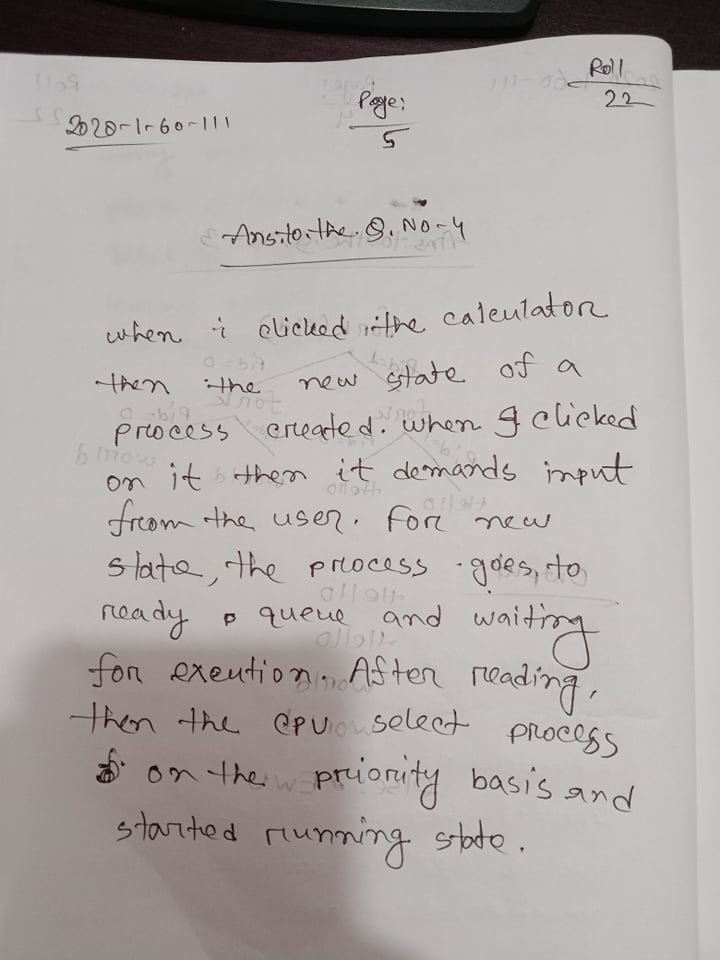 Roll
22
2020-1-60-111
Page:
5
Ans. to. the. Q. No-4
when i clicked the calculator
then the new state of a
process created. when I clicked
on it then it demands input
from the user. For new
state, the process goes, to
ready queue and waiting
for exeution. After reading,
then the cpu select process
on the priority basis and
started running state.